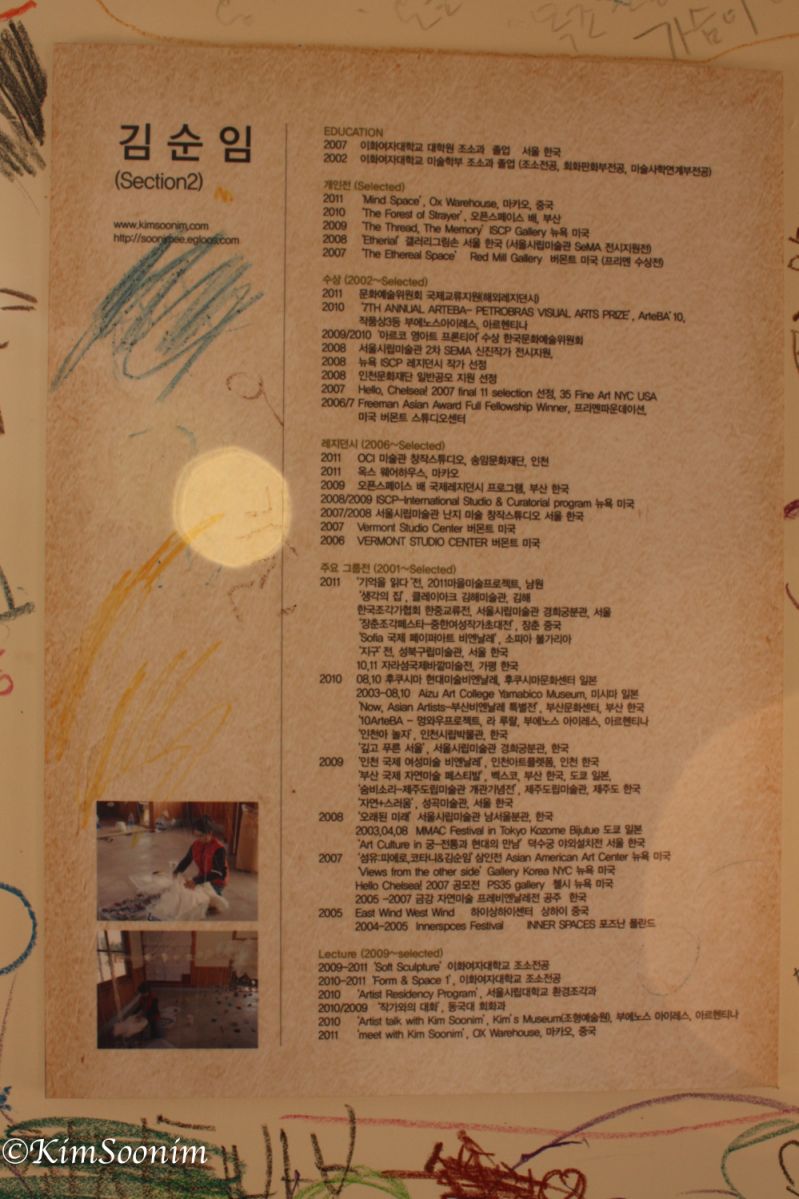 가슴이
김 순 임
(Section2)
www.kimsoonim.com
http://soonimee.egloos.com
EDUCATION
2007 이화여자대학교 대학원 조소과 졸업 서울 한국
2002 이화여자대학교 미술학부 조소과 졸업 (조소전공, 회화판화부전공, 미술사학연계부전공)
개인전 (Selected)
2011 'Mind Space', Ox Warehouse, 마카오, 중국
2010 'The Forest of Strayer', 오픈스페이스 배, 부산
2009 'The Thread, The Memory' ISCP Gallery 뉴욕 미국
2008 'Etherial' 갤러리그림손 서울 한국 (서울시립미술관 SeMA 전시지원전)
2007 'The Ethereal Space' Red Mill Gallery 버몬트 미국 (프리멘 수상전)
수상 (2002~Selected)
2011 문화예술위원회 국제교류지원(해외레지던시)
2010 '7TH ANNUAL ARTEBA- PETROBRAS VISUAL ARTS PRIZE', ArteBA'10,
작품상3등 부에노스아이레스, 아르헨티나
2009/2010 '아르코 영아트 프론티어' 수상 한국문화예술위원회
2008 서울시립미술관 2차 SEMA 신진작가 전시지원,
2008 뉴욕 ISCP 레지던시 작가 선정
2008 인천문화재단 일반공모 지원 선정
2007 Hello, Chelsea! 2007 final 11 selection 선정, 35 Fine Art NYC USA
2006/7 Freeman Asian Award Full Fellowship Winner, 프리멘파운데이션,
미국 버몬트 스튜디오센터
레지던시 (2006~Selected)
2011 OCI 미술관 창작스튜디오, 송암문화재단, 인천
2011 옥스 웨어하우스, 마카오
2009 오픈스페이스 배 국제레지던시 프로그램, 부산 한국
2008/2009 ISCP-International Studio & Curatorial program 뉴욕 미국
2007/2008 서울시립미술관 난지 미술 창작스튜디오 서울 한국
2007 Vermont Studio Center 버몬트 미국
2006 VERMONT STUDIO CENTER 버몬트 미국
주요 그룹전 (2001~Selected)
2011 '기억을 읽다'전, 2011마을미술프로젝트, 남원
'생각의 집', 클레이아크 김해미술관, 김해
한국조각가협회 한중교류전, 서울시립미술관 경희궁분관, 서울
'장춘조각페스타-중한여성작가초대전', 장춘 중국
'Sofia 국제 페이퍼아트 비엔날레', 소피아 불가리아
'지구'전, 성북구립미술관, 서울 한국
10,11 자라섬국제바깥미술전, 가평 한국
2010 08,10 후쿠시마 현대미술비엔날레, 후쿠시마문화센터 일본
2003-08,10 Aizu Art College Yamabico Museum, 미시마 일본
'Now, Asian Artists-부산비엔날레 특별전', 부산문화센터, 부산 한국
'10ArteBA - 엉와우프로젝트, 라 루랄, 부에노스 아이레스, 아르헨티나
'인천아 놀자', 인천시립박물관, 한국
'깊고 푸른 서울', 서울시립미술관 경희궁분관, 한국
2009 '인천 국제 여성미술 비엔날레', 인천아트플랫폼, 인천 한국
'부산 국제 자연미술 페스티발', 벡스코, 부산 한국, 도쿄 일본,
'숨비소리-제주도립미술관 개관기념전', 제주도립미술관, 제주도 한국
'자연+스러움', 성곡미술관, 서울 한국
2008 '오래된 미래' 서울시립미술관 남서울분관, 한국
2003,04,08 MMAC Festival in Tokyo Kozome Bijutue 도쿄 일본
'Art Culture in 궁-전통과 현대의 만남' 덕수궁 야외설치전 서울 한국
2007 '섬유:피에로,코타니&김순임' 삼인전 Asian American Art Center 뉴욕 미국
'Views from the other side' Gallery Korea NYC 뉴욕 미국
Hello Chelsea! 2007 공모전 PS35 gallery 첼시 뉴욕 미국
2005 -2007 금강 자연미술 프레비엔날레전 공주 한국
2005 East Wind West Wind 하이상하이센터 상하이 중국
2004-2005 Innerspces Festival INNER SPACES 포즈난 폴란드
Lecture (2009~selected)
2009-2011 'Soft Sculpture' 이화여자대학교 조소전공
2010-2011 'Form & Space 1', 이화여자대학교 조소전공
2010 'Artist Residency Program', 서울시립대학교 환경조각과
2010/2009 '작가와의 대화', 동국대 회화과
2010 'Artist talk with Kim Soonim', Kim's Museum(조형예술원), 부에노스 아이레스, 아르헨티나
2011 'meet with Kim Soonim', OX Warehouse, 마카오, 중국
©KimSoonim